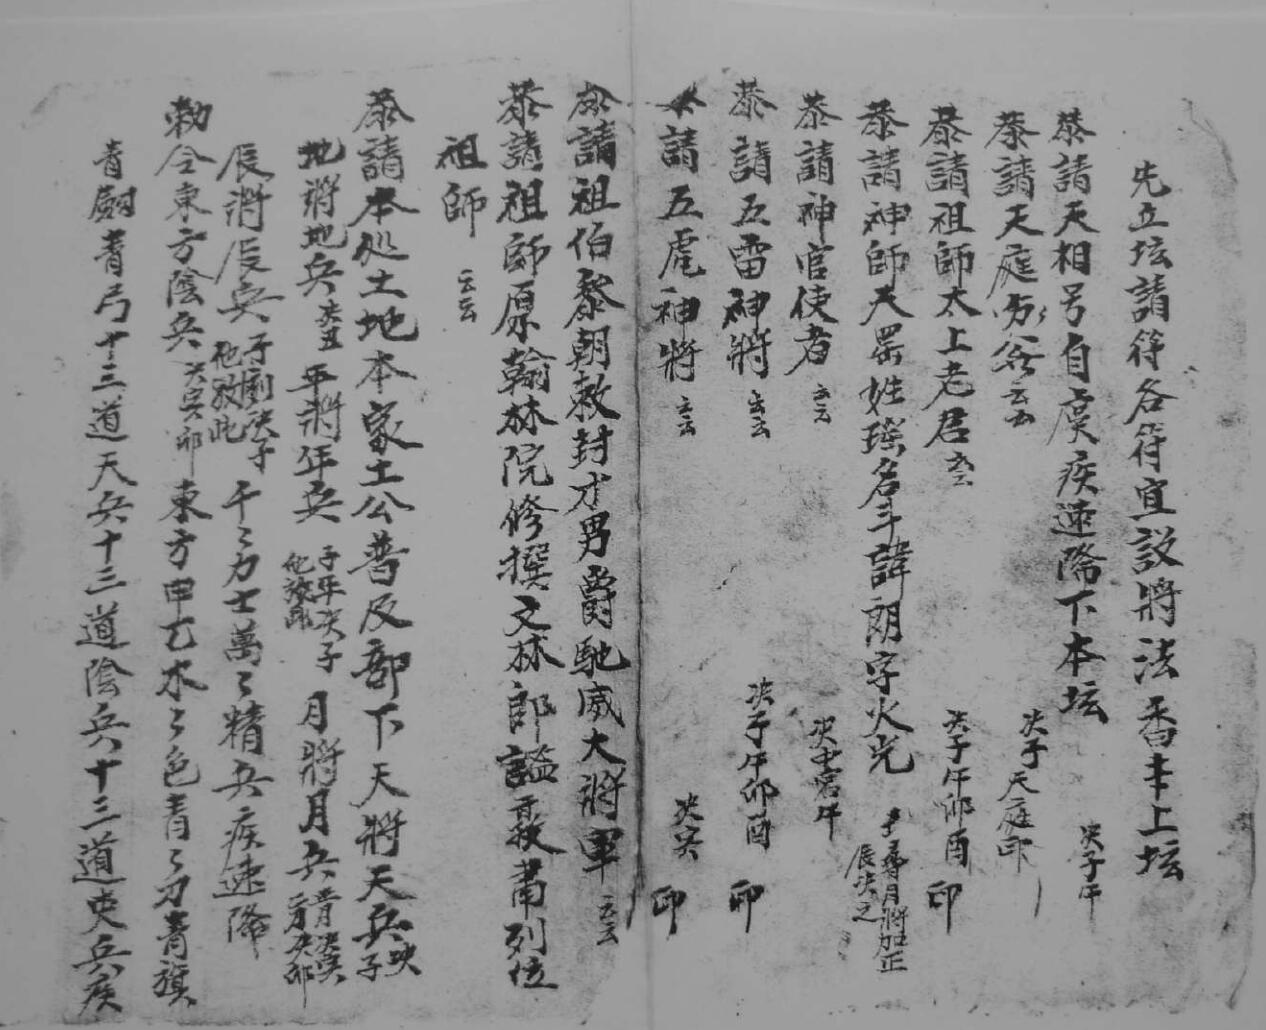 先立坛請符各符宜設將法香丰上坛
恭請天相号自虔疾速降下本坛 决子午
恭請天庭 云云 决子天庭印
恭請祖師太上老君云云 决子午卯酉 印
恭請神師天罡姓瑤名斗諱朗字火光 月將加正辰决之
恭請神官使者云云 决 午
恭請五雷神將云云 决子午卯酉 印
恭請五虎神將云云 决寅 印
恭請祖伯黎朝敕封才男爵馳威大將軍云云
恭請祖師原翰林院修撰文林郎謚 肅列位
祖師云云
恭請本処土地本家土公普及部下天將天兵决子
地將地兵决丑 年將年兵子年决子他 月將月兵 决寅 决卯
辰將辰兵子刻决子他效此 千〻力士萬〻精兵疾速降
勅令東方陰兵决寅卯 東方甲乙水〻色青〻刀青旗
青劍青弓十三道天兵十三道陰兵十三道吏兵疾